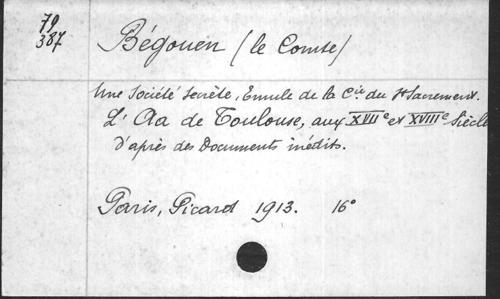 79
387
Bégouen (le Comte)
Une Société secrète, Emule de la Cie du St Sacrement.
L'Aa de Toulouse, aux XVIIe et XVIIIe Siècles
d'après des Documents inédits.
Paris, Picard 1913. 16°